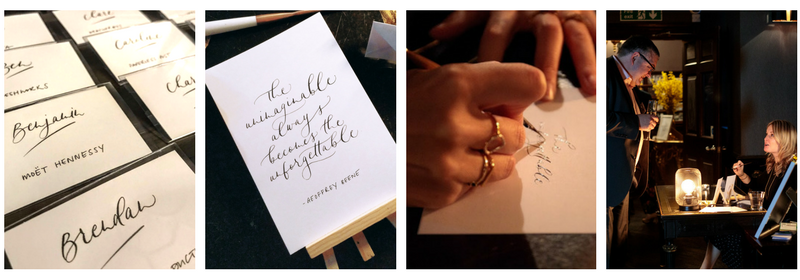 Ben
Benjamin
MOËT HENNESSY
Brendan
Caroline
Clare
the
unimaginable
always
becomes the
unforgettable
- GEOFFREY BEENE